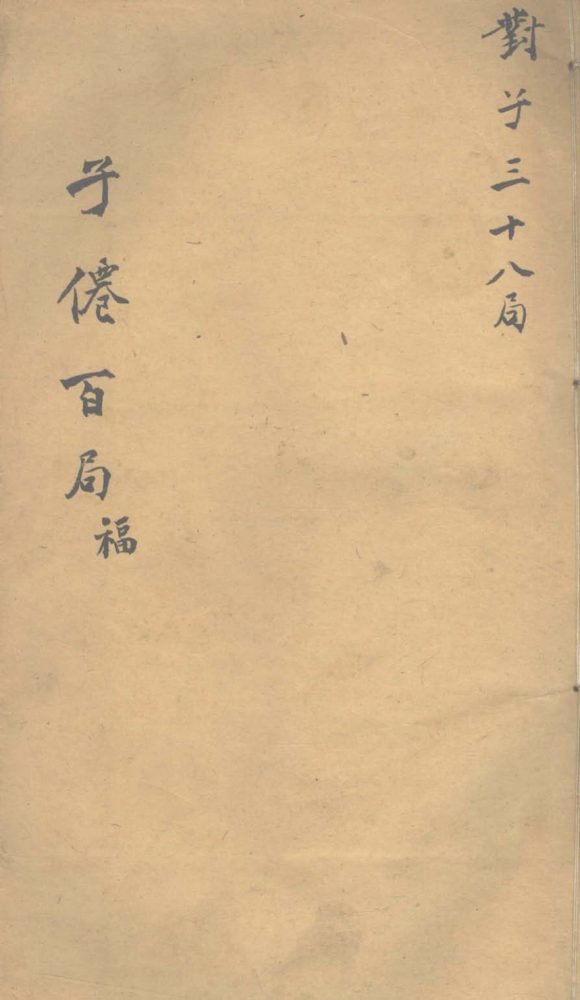 對子三十八局
子僊百局福